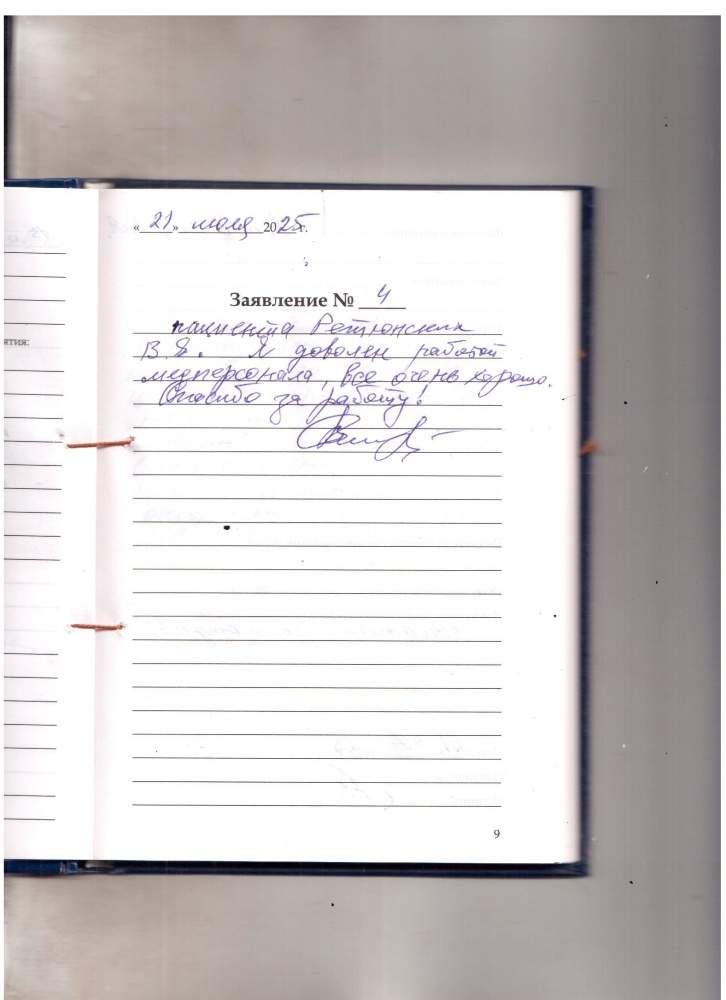 ятия:
« 21 » июля 2025 г.
Заявление № 4
пациента
В. Я. Я доволен работой
медперсонала, все очень хорошо.
Спасибо за работу.
9